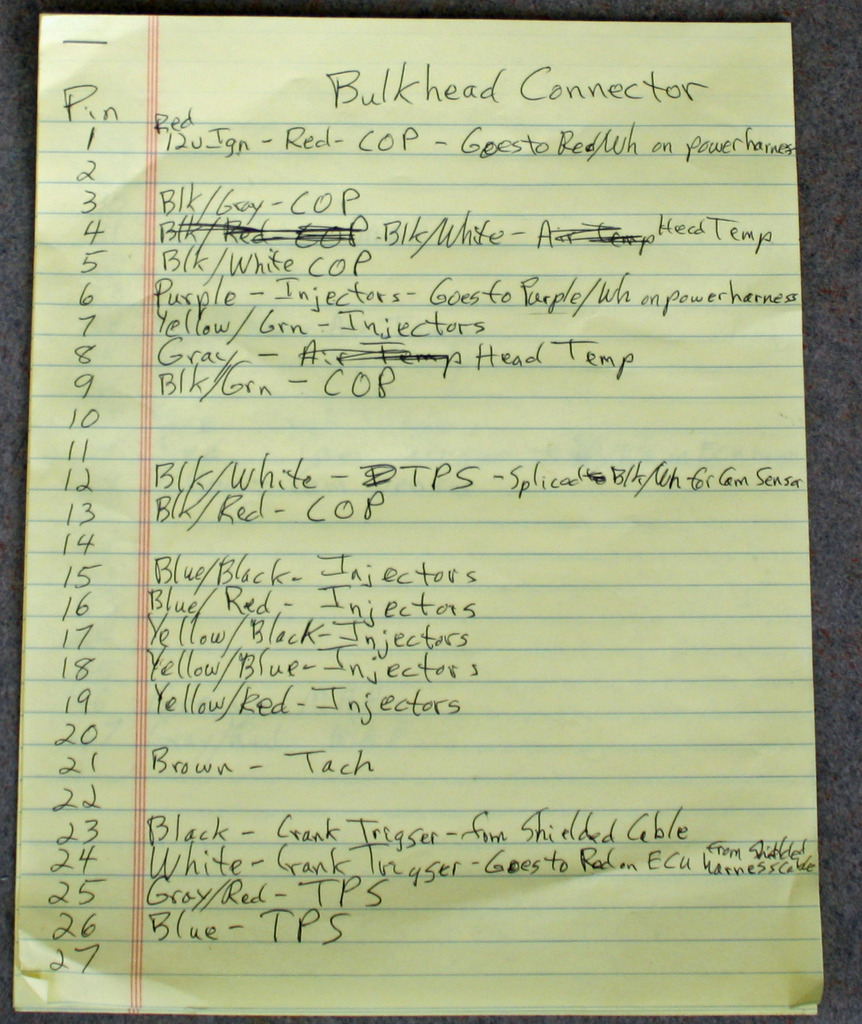 Bulkhead Connector
Pin
1 Red 12v Ign - Red - COP - Goes to Red/Wh on power harness
2
3 Blk/Gray - COP
4 Blk/Red COP - Blk/White - Air Temp Head Temp
5 Blk/White COP
6 Purple - Injectors - Goes to Purple/Wh on power harness
7 Yellow/Grn - Injectors
8 Gray - Air Temp Head Temp
9 Blk/Grn - COP
10
11
12 Blk/White - TPS - Spliced to Blk/Wh for Cam Sensor
13 Blk/Red - COP
14
15 Blue/Black - Injectors
16 Blue/Red - Injectors
17 Yellow/Black - Injectors
18 Yellow/Blue - Injectors
19 Yellow/Red - Injectors
20
21 Brown - Tach
22
23 Black - Crank Trigger - from Shielded Cable
24 White - Crank Trigger - Goes to Red on ECU harness From Shielded Cable
25 Gray/Red - TPS
26 Blue - TPS
27